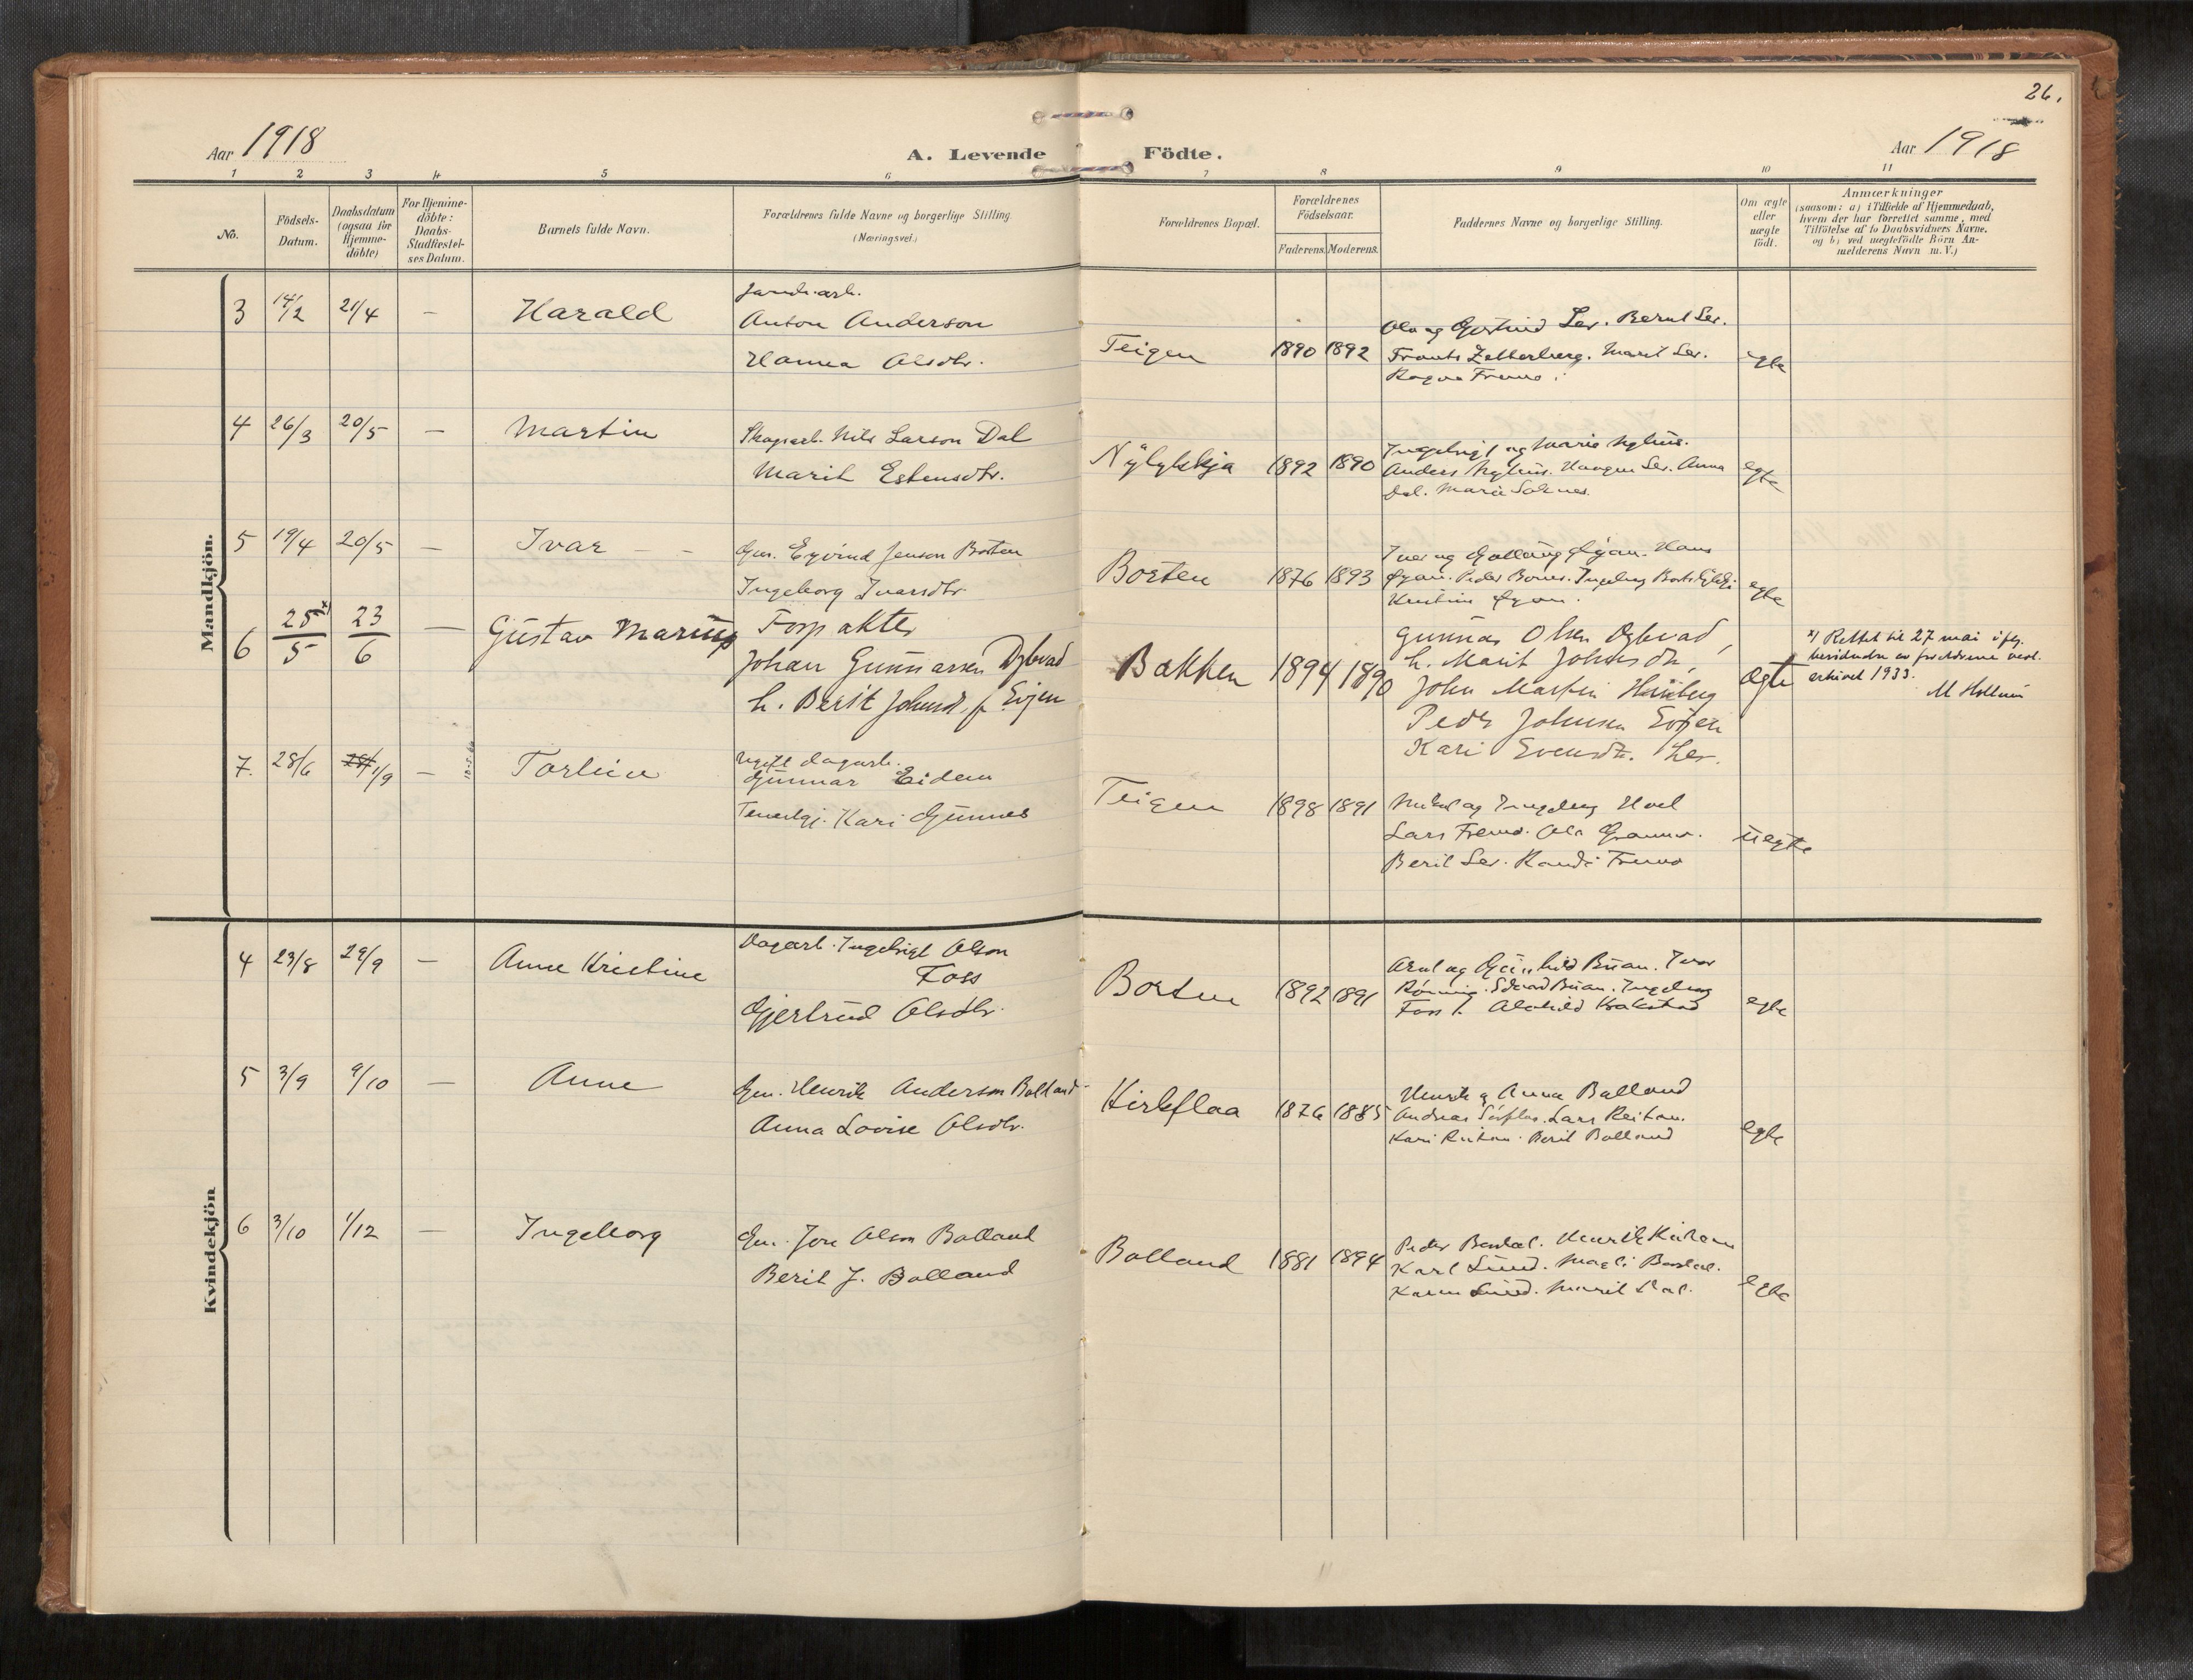 26.
Aar 1918
A. Levende Födte.
Aar 1918
1 2 3 4 5 6 7 8 9 10 11
No.
Födsels-Datum.
Daabsdatum (ogsaa for Hjemme-döbte)
For Hjemme-döbte: Daabs-Stadfæstel-ses Datum.
Barnets fulde Navn.
Forældrenes fulde Navne og borgerlige Stilling.
(Næringsvei.)
Forældrenes Bopæl.
Forældrenes Födselsaar.
Faderens. Moderens.
Faddernes Navne og borgerlige Stilling.
Om ægte eller uægte födt.
Anmærkninger
(saasom: a) i Tilfælde af Hjemmedaab,
hvem der har forrettet samme, med
Tilföielse af to Daabsvidners Navne,
og b) ved uægtefödte Börn An-
melderens Navn m. V.)
Mandkjön.
3 14/2 21/4 – Harald
Anton Anderson
Hanna Olsdtr.
Teigen 1890 1892
Ola og Gjertrud Ler. Bernt Ler.
Frants Zetterberg. Marit Ler.
egte
4 26/3 20/5 – Martin
Skogsarb. Nils Larson Dal
Marit Estensdtr.
1892 1890
Ingebrigt og Marie Nyhus.
Anders Nyhus. Ler. Anna
Dal. Marie
egte
5 19/4 20/5 – Ivar – –
Gm. Eyvind Jenson Borten
Ingeborg Ivarsdtr.
Borten 1876 1893
Iver og Øyan. Hans
Øyan. Peder Ingeborg
Kristine Øyan.
egte
6 25 x)/5 23/6 – Gustav Marius
Forpakter
Johan Gunnarsen Dybvad
h. Berit Johnsd. f. Eijen
Bakken 1894 1890
Gunnar Olsen Dybvad,
h. Marit Johnsdtr,
John Martin
Peder Johnsen Eijen
Kari Svensdtr. Ler.
Ægte
x) Rettet til 27 mai ifg.
av forældrene vest.
1933.
M
7. 28/6 1/9 – Torleiv
Ugift dagarb.
Gunnar Eidem
Kari Gunnes
Teigen 1898 1891
og Ingeborg Hoel
Lars Fremo. Ola
Berit Ler. Randi Fremo
uegte
Kvindekjön
4 23/8 29/9 – Anne Kristine
Dagarb. Ingebrigt Olson
Foss
Gjertrud Olsdtr.
Borten 1892 1891
Arnt og Gunhild Buan. Ivar
Rönning. Edvard Buan. Ingeborg
Foss. Krakstad
egte
5 3/9 9/10 – Anne
Gm. Henrik Anderson Bolland
Anna Lovise Olsdtr.
Kirkflaa 1876 1885
Henrik og Anna Bolland
Andreas Lars Reitan.
Kari Reitan. Berit Bolland
egte
6 3/10 1/12 – Ingeborg
Gm. Jon Olson Bolland
Berit J. Bolland
Bolland 1881 1894
Peder Henrik
Karl Lund. Magli
Karen Lund. Marit Dal.
egte